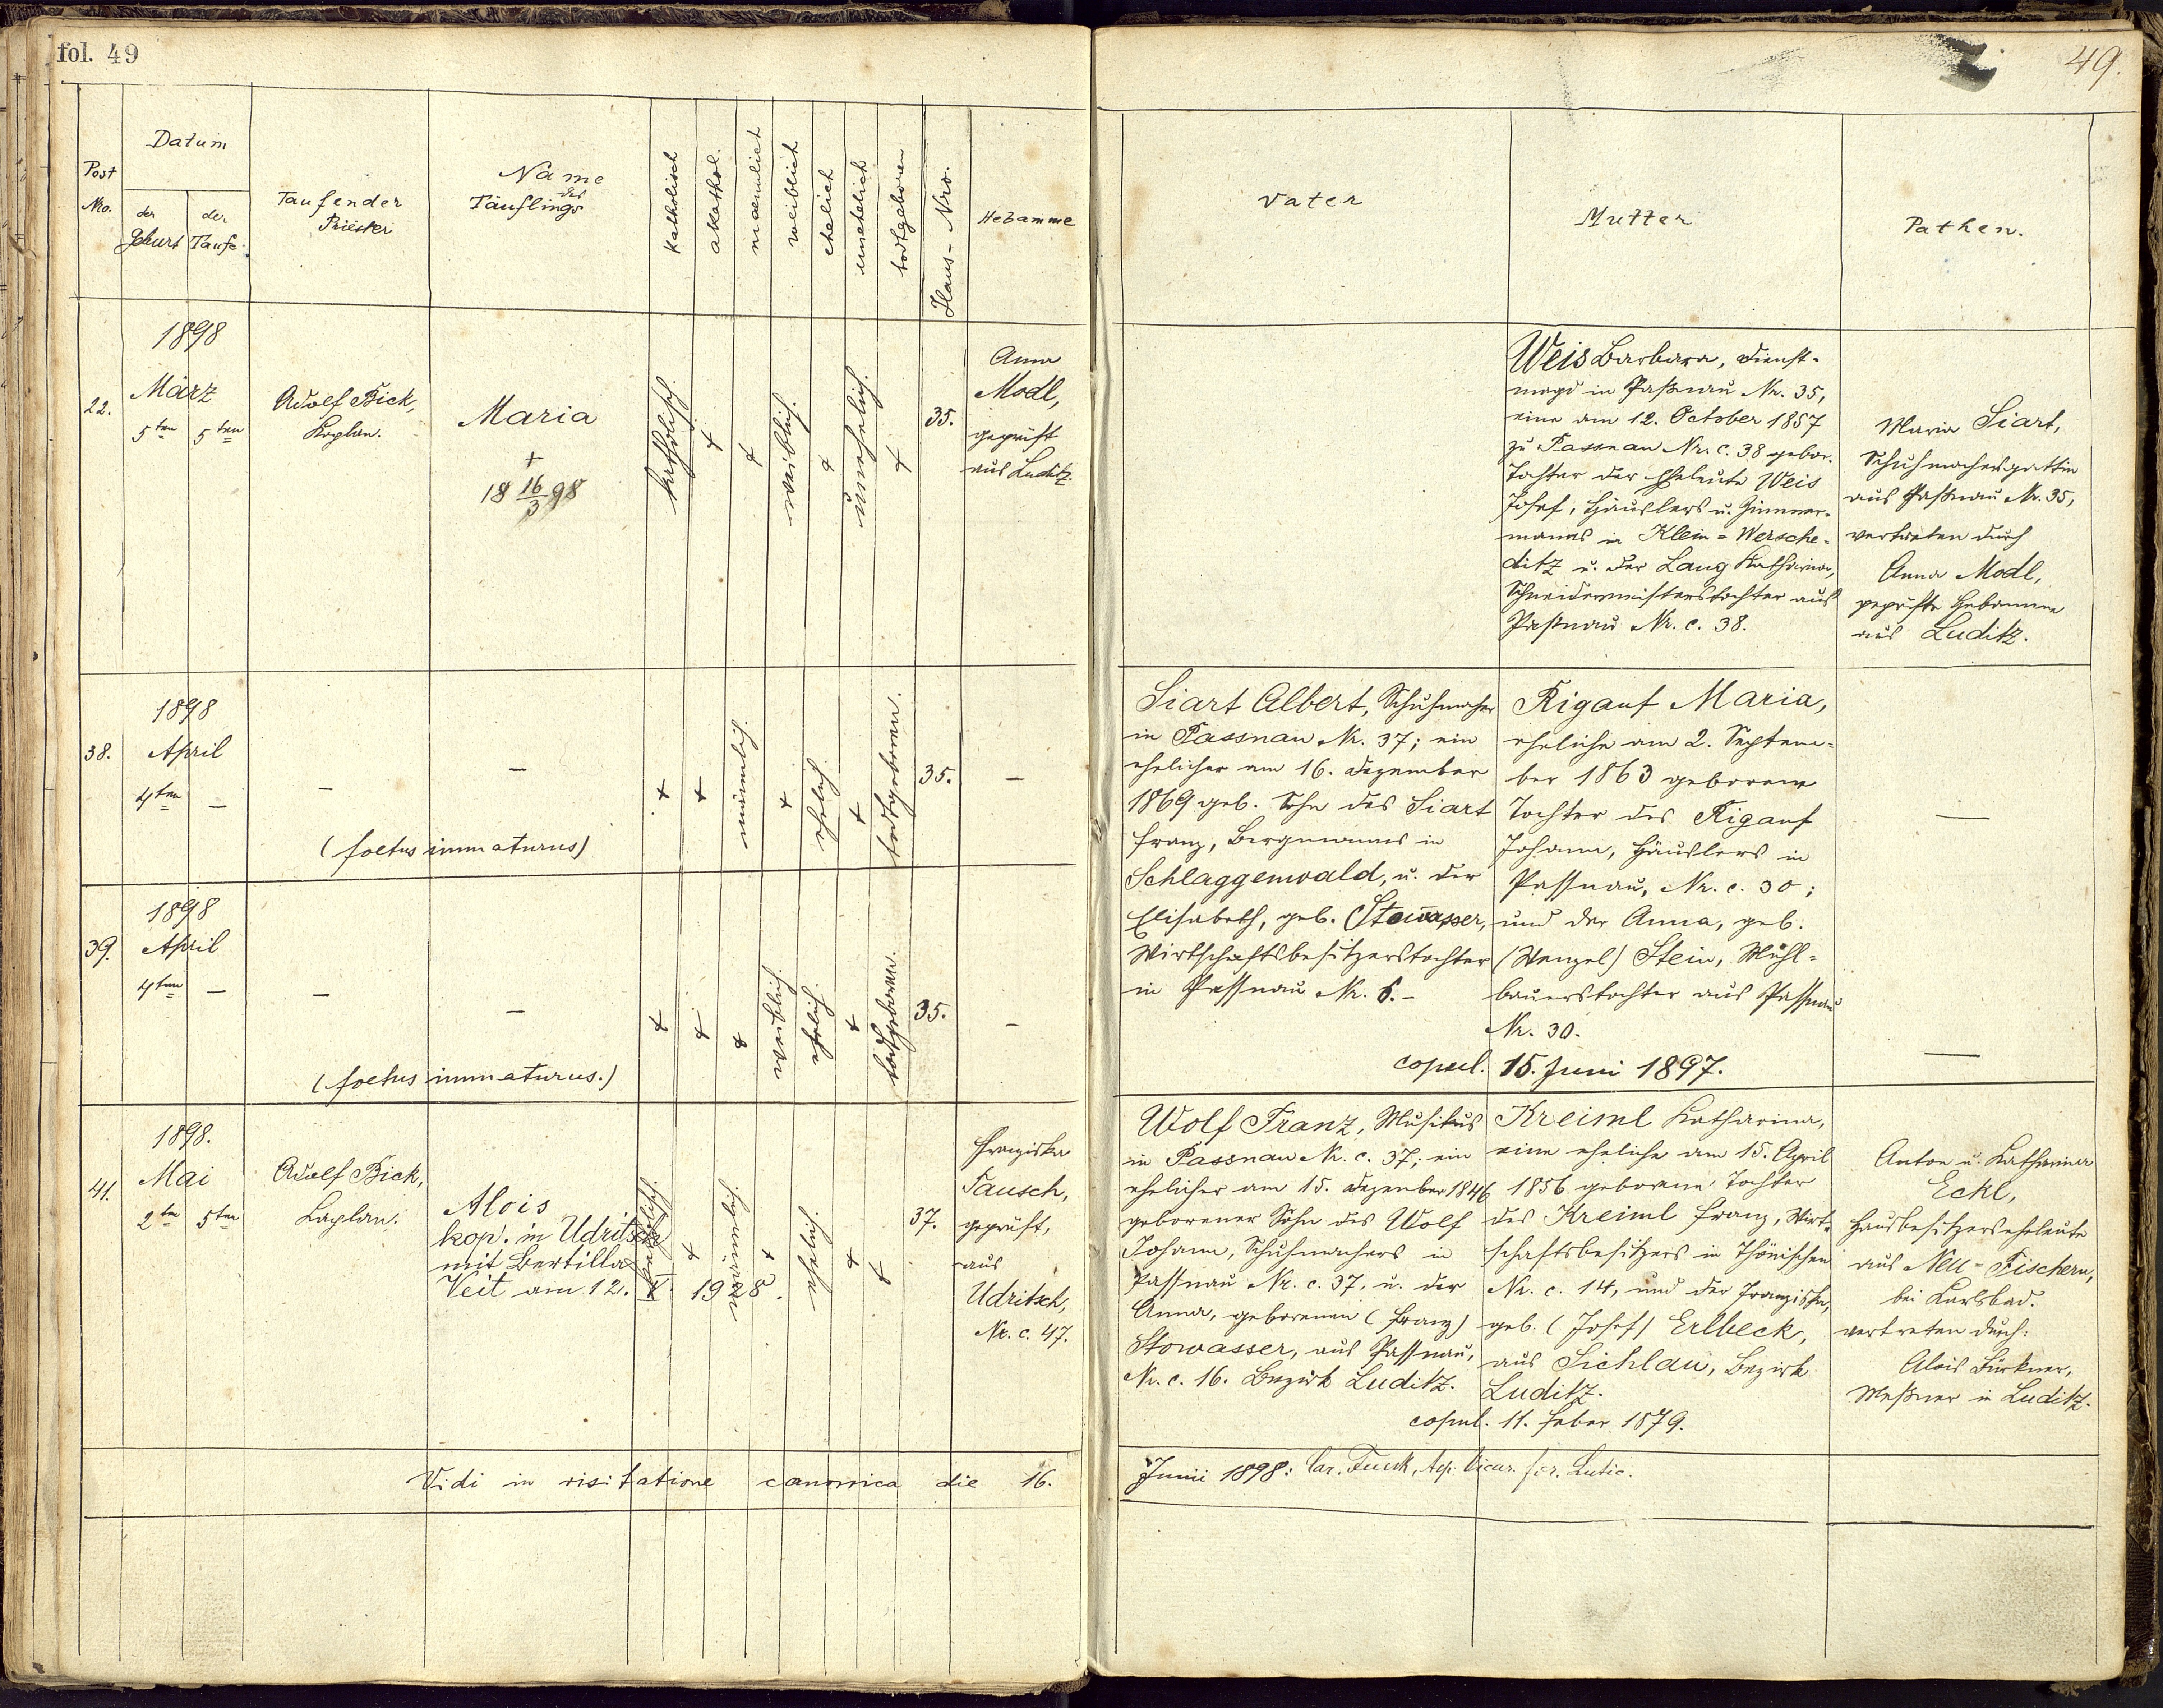 fol. 49
49.
Post Nro.
Datum
der Geburt
der Taufe
Taufender Priester
Name des Täuflings
katholisch
akathol.
maennlich
weiblich
ehelich
unehelich
todtgeboren
Haus-Nro.
Hebamme
Vater
Mutter
Pathen.
22.
1898
März
5ten
5ten
Adolf Bick,
Kaplan.
Maria
+
18 16/3 98
katholisch.
+
+
weiblich.
+
unehelich.
+
35.
Anna
Modl,
geprüft
aus Luditz.
Weis Barbara, Dienst-
magd in Paßnau Nr. 35,
eine am 12. October 1857
zu Passnau Nr. c. 38 gebor.
Tochter der Eheleute Weis
Josef, Häuslers u. Zimmer-
manns in Klein-Wersche-
ditz u. der Lang Katharina,
Schneidermeisterstochter aus
Paßnau Nr. c. 38.
Maria Siart,
Schuhmachersgattin
aus Paßnau Nr. 35,
vertreten durch
Anna Modl,
geprüfte Hebamme
aus Luditz.
38.
1898
April
4ten
–
–
–
(foetus immaturus)
+
+
männlich.
+
ehelich
+
todtgeboren.
35.
–
Siart Albert, Schuhmacher
in Passnau Nr. 37; ein
ehelicher am 16. Dezember
1869 geb. Sohn des Siart
Franz, Bergmanns in
Schlaggenwald, u. der
Elisabeth, geb. Stowasser,
Wirtschaftsbesitzerstochter
in Passnau Nr. 6.–
Rigauf Maria,
eheliche am 2. Septem-
ber 1863 geborene
Tochter des Rigauf
Johann, Häuslers in
Passnau, Nr. c. 30;
und der Anna, geb.
(Wenzel) Stein, Mühl-
bauerstochter aus Passnau
Nr. 30.
copul. 15. Juni 1897.
—
39.
1898
April
4ten
–
–
–
(foetus immaturus.)
+
+
+
weiblich.
ehelich.
+
todtgeboren.
35.
–
—
41.
1898.
Mai
2ten
5ten
Adolf Bick,
Kaplan.
Alois
kop. in Udritsch
mit Bertilla
Veit am 12. V. 1928.
katholisch.
+
männlich.
+
ehelich.
+
+
37.
Franziska
Pausch,
geprüft,
aus
Udritsch,
Nr. c. 47.
Wolf Franz, Musikus
in Passnau Nr. c. 37; ein
ehelicher am 15. Dezember 1846
geborener Sohn des Wolf
Johann, Schuhmachers in
Passnau Nr. c. 37, u. der
Anna, geborenen (Franz)
Stowasser, aus Passnau,
Nr. c. 16. Bezirk Luditz.
Kreiml Katharina,
eine eheliche am 15. April
1856 geborene Tochter
des Kreiml Franz, Wirt-
schaftsbesitzers in Thönischen
Nr. c. 14, und der Franziska,
geb. (Josef) Erlbeck,
aus Sichlau, Bezirk
Luditz.
copul. 11. Feber 1879.
Anton u. Katharina
Eckl,
Hausbesitzerseheleute
aus Neu-Fischern,
bei Karlsbad.
vertreten durch:
Alois Türkner,
Meßner in Luditz.
Vidi in visitatione canonica die 16.
Junii 1898: Car. Funk, Vicar. for. Lutic.